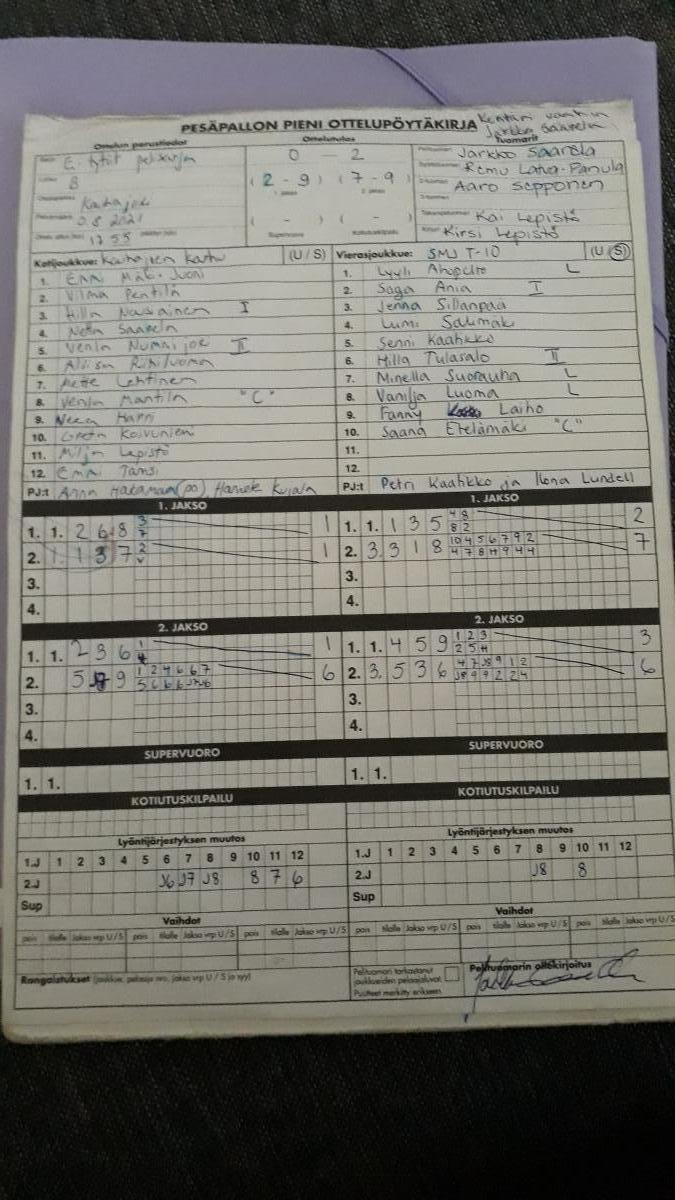 Kentän vaihtin
Jarkko Saarela
PESÄPALLON PIENI OTTELUPÖYTÄKIRJA
Ottelun perustiedot Ottelutulos Tuomarit
E-tytöt pelisarja 0 - 2 Jarkko Saarela
B (2 - 9) (7 - 9) Remu Latva-Panula
Aaro Sepponen
( - ) ( - ) Kai Lepistö
17 55 Supervuoro Kotiutuskilpailu Kirsi Lepistö
Kotijoukkue: Kauhajoen Karhu (U / S) Vierasjoukkue: SMJ T-10 (U / S)
1. Enni Mäki-Jouni 1. Lyyli Ahopelto L
2. Vilma Penttilä 2. Saga Ania I
3. Hilla Nousiainen I 3. Jenna Sillanpää
4. Neea Saarela 4. Lumi Salmmäki
5. Venla Nummijoe II 5. Senni Kaahikko
6. Riihiluoma 6. Hilla Tulasalo II
7. Mette Lehtinen 7. Minella Suorauha L
8. Venla Mantila "C" 8. Vanilja Luoma L
9. Neea Harri 9. Fanny Laiho
10. Greta Koivuniemi 10. Saana Etelämäki "C"
11. Milja Lepistö 11.
12. Emmi Tamsi 12.
PJ:t PJ:t Petri Kaahikko ja Ilona Lundell
1. JAKSO 1. JAKSO
1. 1. 2 6 8 3 1 1. 1. 1 3 5 4 8 2
7 8 2
2. 1. 1 3 7 2 1 2. 3. 3 1 8 10 4 5 6 7 9 2 7
4 7 8 11 9 4 4
3. 3.
4. 4.
2. JAKSO 2. JAKSO
1. 1. 2 3 6 1 1 1. 1. 4 5 9 1 2 3 3
4 2 5 11
2. 5 9 1 2 4 6 6 7 6 2. 3. 5 3 6 4 7 J8 9 1 2 6
5 6 6 6 J7 J6 J8 9 9 2 2 4
3. 3.
4. 4.
SUPERVUORO SUPERVUORO
1. 1. 1. 1.
KOTIUTUSKILPAILU KOTIUTUSKILPAILU
Lyöntijärjestyksen muutos Lyöntijärjestyksen muutos
1.J 1 2 3 4 5 6 7 8 9 10 11 12 1.J 1 2 3 4 5 6 7 8 9 10 11 12
2.J J6 J7 J8 8 7 6 2.J J8 8
Sup Sup
Vaihdot Vaihdot
pois tilalle Jakso vrp U / S pois tilalle Jakso vrp U / S pois tilalle Jakso vrp U / S pois tilalle Jakso vrp U / S pois tilalle Jakso vrp U / S pois tilalle Jakso vrp U / S
Rangaistukset (joukkue, pelaaja nro, jakso vrp U / S ja syy) Pelituomari tarkastanut Pelituomarin allekirjoitus
joukkueiden pelaajaluvat
Puutteet merkitty erikseen